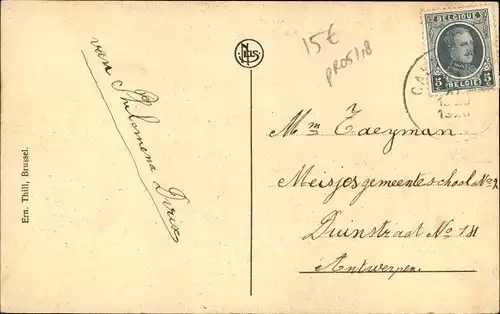 van Philomena Dirix
Ern. Thill, Brussel.
NELS
15€
PR05/18
BELGIQUE
5 5
BELGIË
CA
1926
Mm Taeyman
Meisjesgemeenteschool No 2
Duinstraat No 131
Antwerpen.